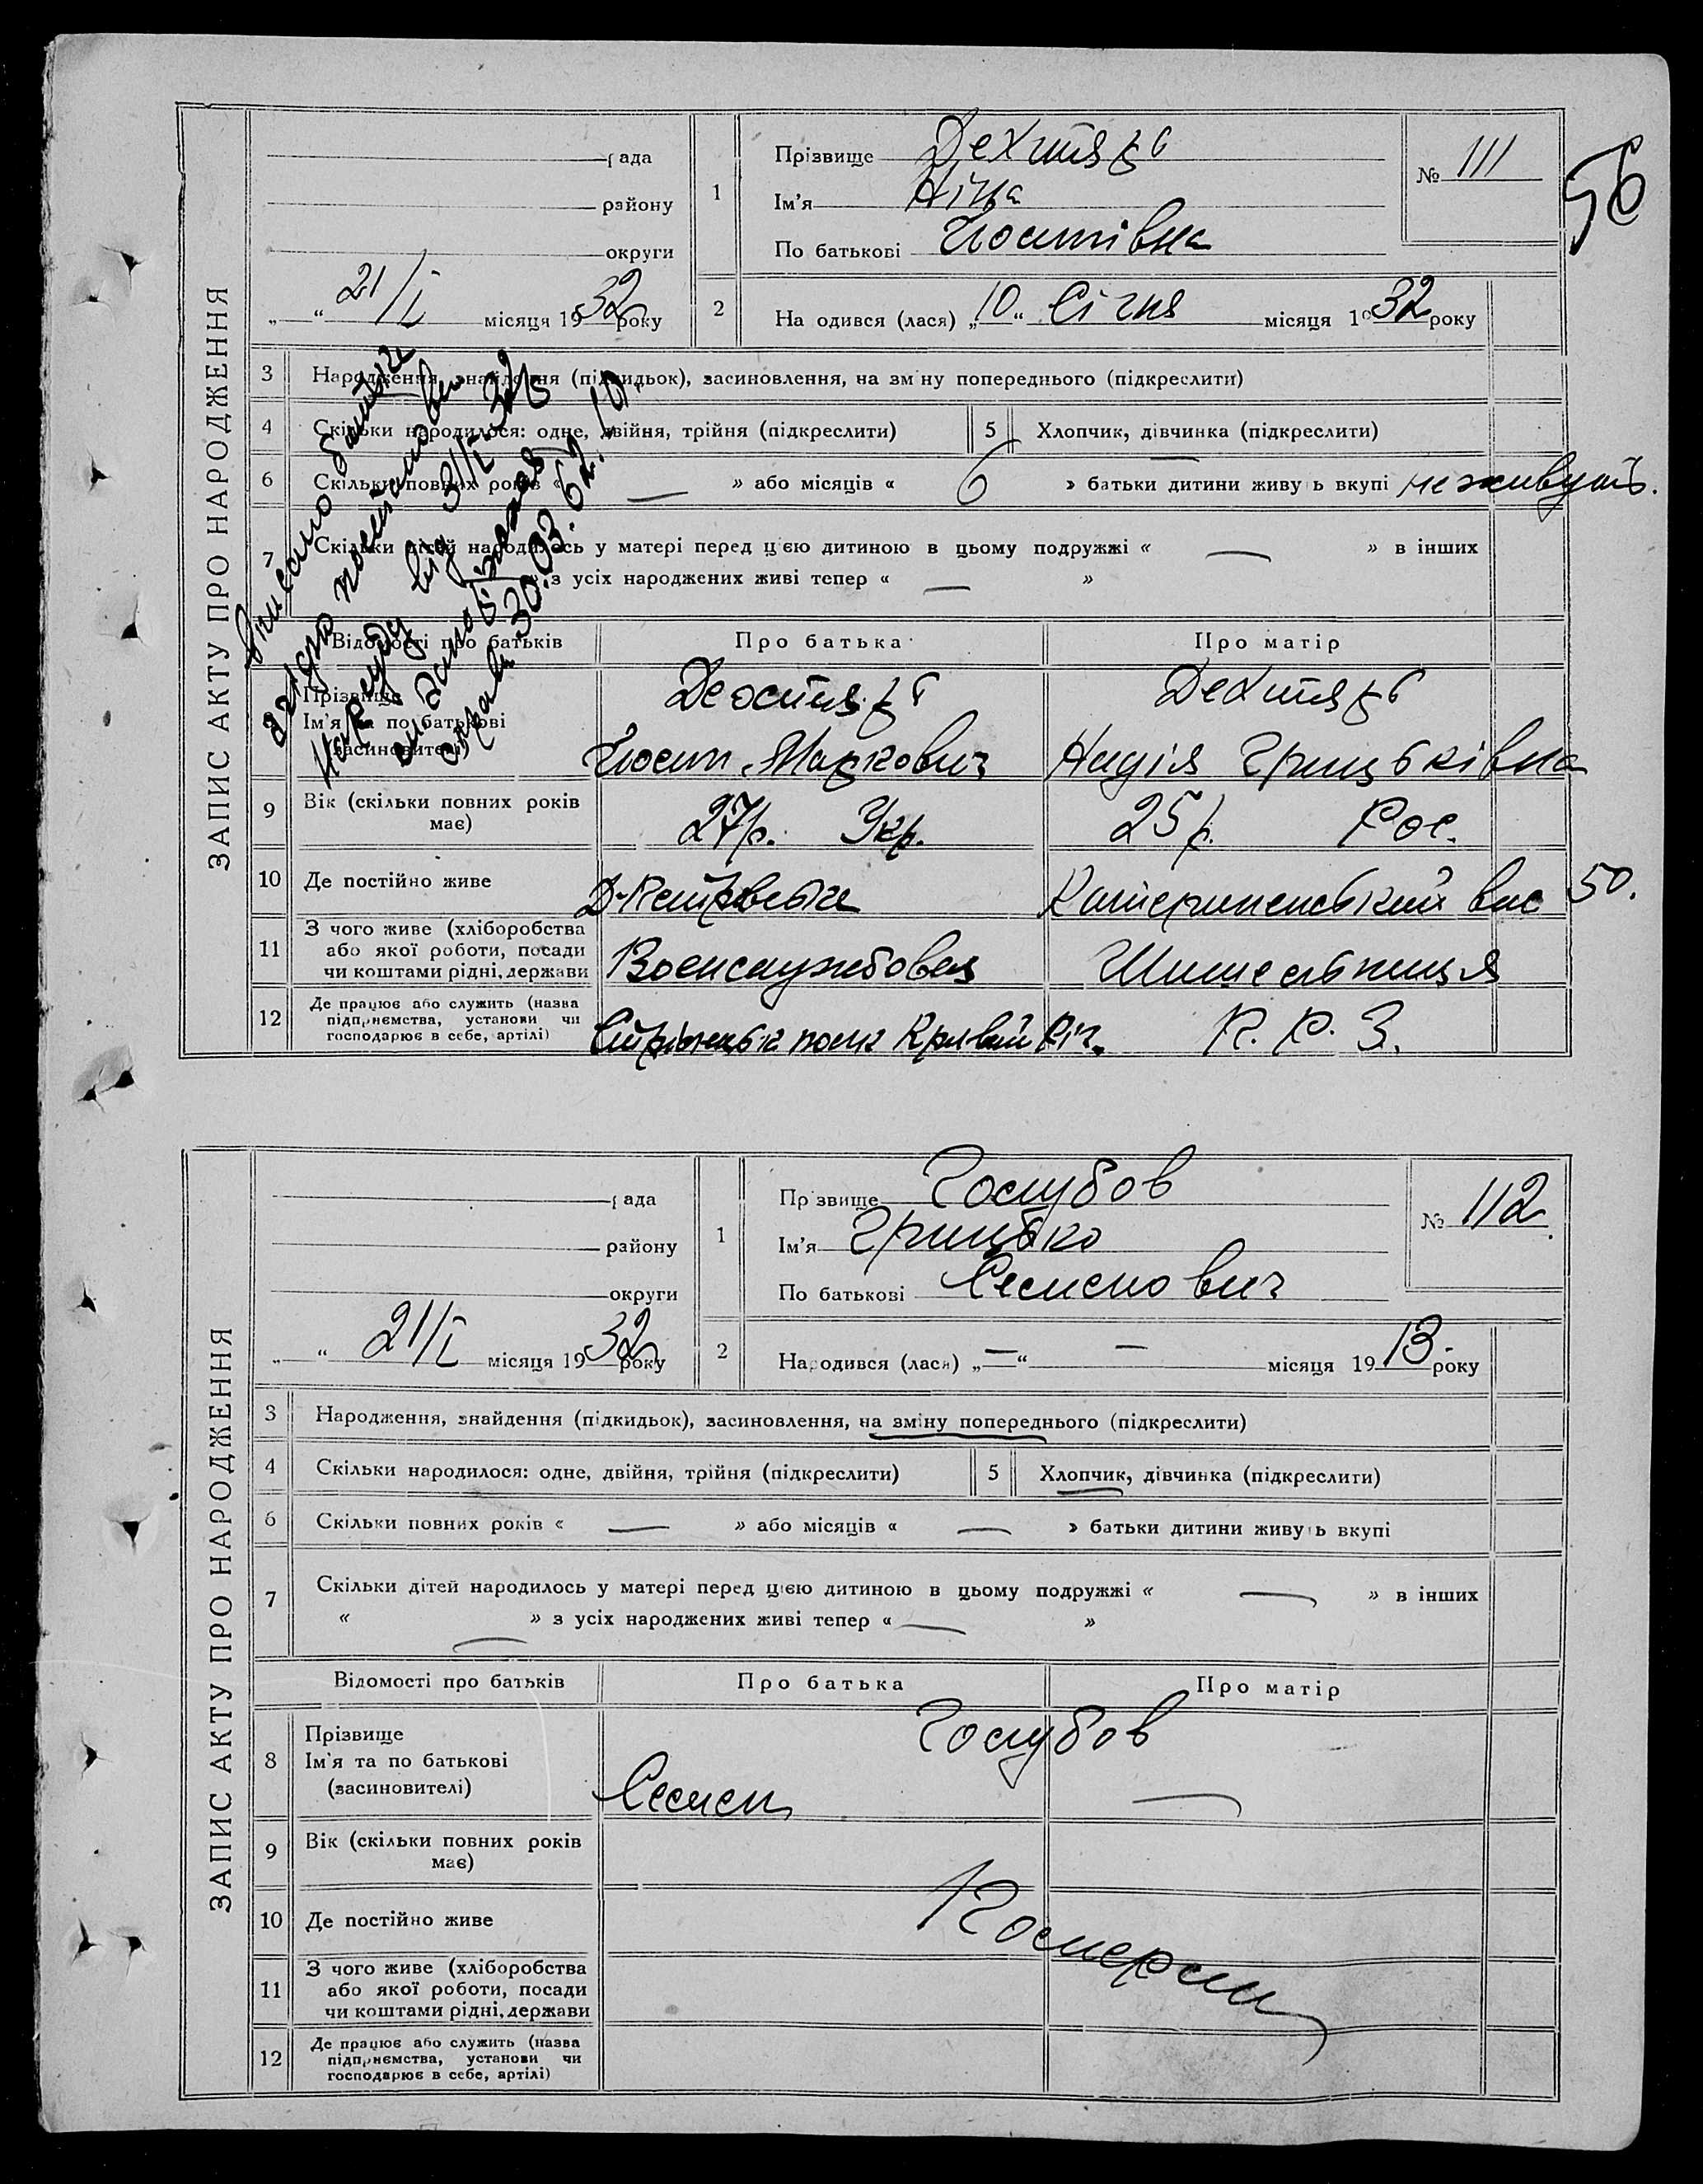 56
ЗАПИС АКТУ ПРО НАРОДЖЕННЯ
рада
району
округи
„ “ 21/I місяця 1932 року
1
Прізвище Дехтярь
Ім'я Ніна
По батькові Йосипівна
№ 111
2 Народився (лася) „10“ Січня місяця 1932 року
3 Народження, знайдення (підкидьок), засиновлення, на зміну попереднього (підкреслити)
4 Скільки народилося: одне, двійня, трійня (підкреслити)
5 Хлопчик, дівчинка (підкреслити)
6 Скільки повних років « — » або місяців « 6 » батьки дитини живуть вкупі не живуть.
7 Скільки дітей народилось у матері перед цією дитиною в цьому подружжі « — » в інших
» з усіх народжених живі тепер « — »
Вписано батька
згідно постанови
Нарсуду від 31/I-32
30.03.62.
Відомості про батьків
Про батька
Про матір
Прізвище
Ім'я та по батькові
(засиновителі)
Дехтярь
Йосип Маркович
Дехтярь
Надія Грицьківна
9 Вік (скільки повних років має)
27р. Укр.
25р. Рос.
10 Де постійно живе
Д-Петровськ
Катерининський вис 50.
11 З чого живе (хліборобства
або якої роботи, посади
чи коштами рідні, держави
Военслужбовец
Шишельниця
12 Де працює або служить (назва
підприємства, установи чи
господарює в себе, артілі)
Стрілецьк полк Кривий Ріг.
П. Р. З.
ЗАПИС АКТУ ПРО НАРОДЖЕННЯ
рада
району
округи
„ “ 21/I місяця 1932 року
1
Прізвище Голубов
Ім'я Грицько
По батькові Семенович
№ 112
2 Народився (лася) „—“ — місяця 1913 року
3 Народження, знайдення (підкидьок), засиновлення, на зміну попереднього (підкреслити)
4 Скільки народилося: одне, двійня, трійня (підкреслити)
5 Хлопчик, дівчинка (підкреслити)
6 Скільки повних років « — » або місяців « — » батьки дитини живуть вкупі
7 Скільки дітей народилось у матері перед цією дитиною в цьому подружжі « — » в інших
« — » з усіх народжених живі тепер « — »
Відомості про батьків
Про батька
Про матір
8 Прізвище
Ім'я та по батькові
(засиновителі)
Голубов
Семен
—
9 Вік (скільки повних років має)
10 Де постійно живе
11 З чого живе (хліборобства
або якої роботи, посади
чи коштами рідні, держави
12 Де працює або служить (назва
підприємства, установи чи
господарює в себе, артілі)